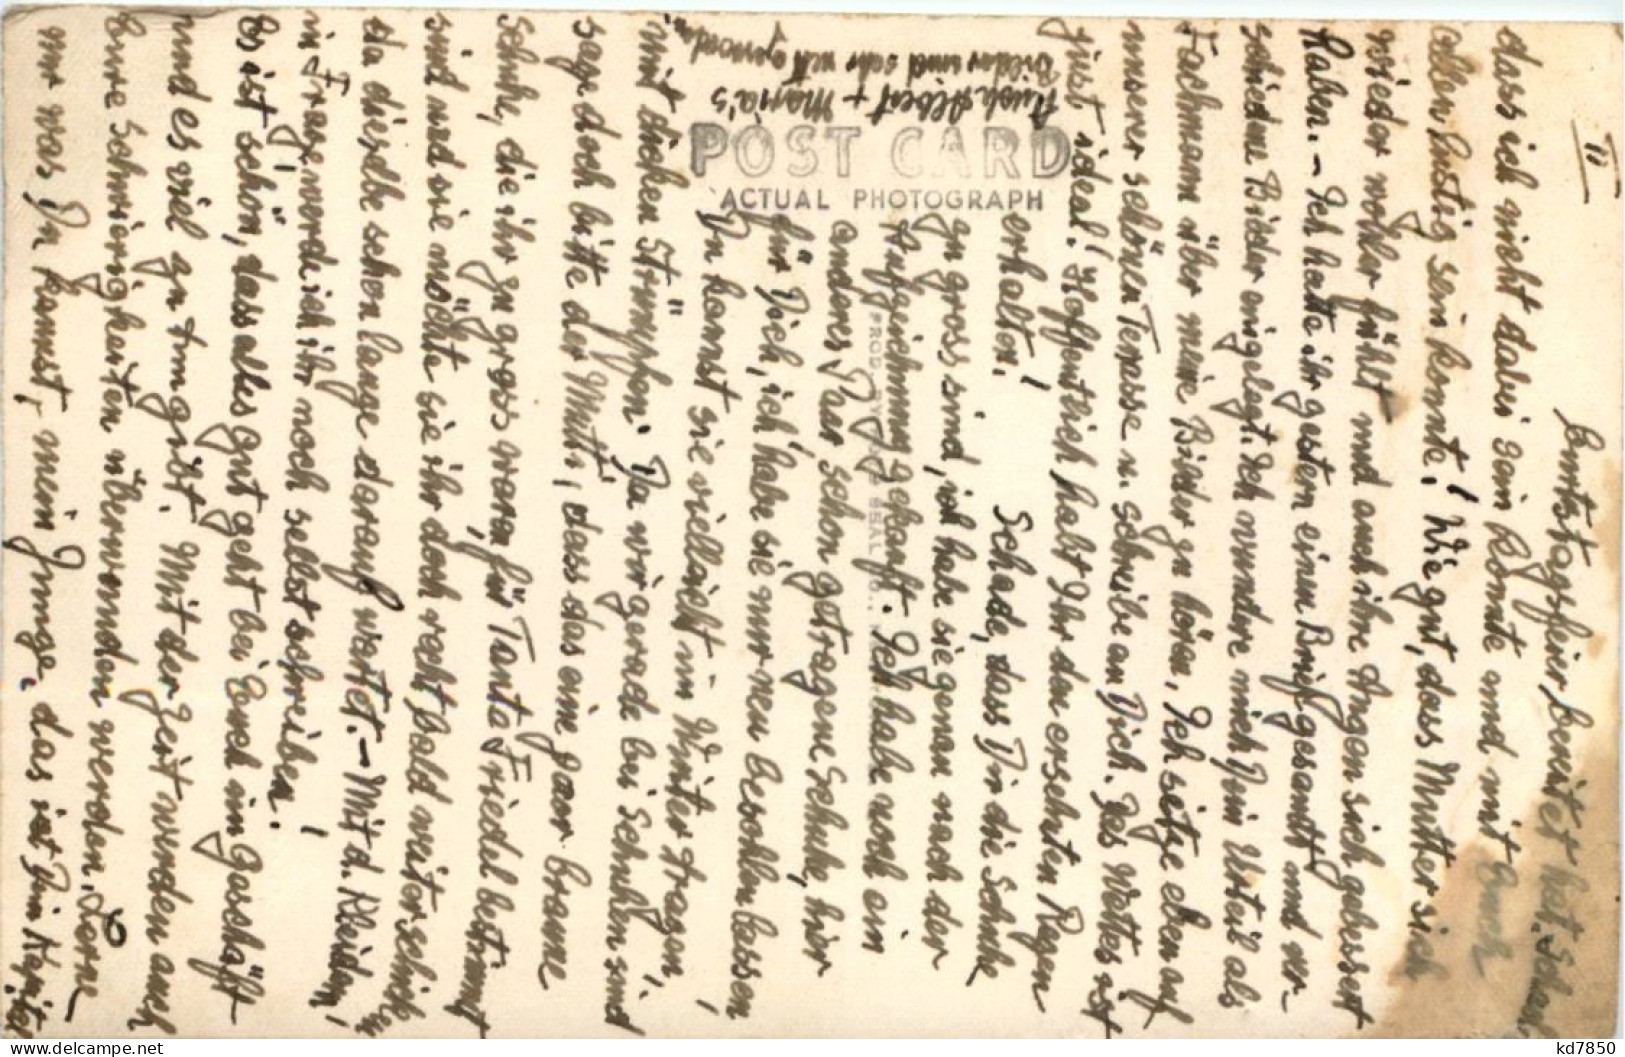 II
burtstagsfeier bereitet hat. Schade
dass ich nicht dabei sein konnte und mit Euch
allen lustig sein konnte! Wie gut, dass Mutter sich
wieder wohler fühlt und auch ihre Augen sich gebessert
haben. – Ich hatte ihr gestern einen Brief gesandt und ver-
schiedene Bilder eingelegt. Ich wundere mich Dein Urteil als
Fachmann über meine Bilder zu hören. Ich sitze eben auf
unserer schönen Terasse u. schreibe an Dich. Das Wetter ist
just ideal! Hoffentlich habt Ihr den ersehnten Regen
erhalten! Schade, dass Dir die Schuhe
zu gross sind, ich habe sie genau nach der
Aufzeichnung gekauft. Ich habe noch ein
anderes Paar schon getragene Schuhe, hier
für Dich, ich habe sie nur neu besohlen lassen
Du kannst sie vielleicht im Winter tragen,
mit dicken Strümpfen! Da wir gerade bei Schuhen sind
sage doch bitte der Mutti, dass das eine paar braune
Schuhe, die ihr zu gross waren, für Tante Friedel bestimmt
sind und sie möchte sie ihr doch recht bald weiterschicken
da dieselbe schon lange darauf wartet. – Mit d. Kleidern,
in Frage, werde ich ihr noch selbst schreiben!
Es ist schön, dass alles gut geht bei Euch im Geschäft
und es viel zu tun gibt. Mit der Zeit werden auch
Eure Schwierigkeiten überwunden werden. Lerne
nur was Du kannst, mein Junge, das ist Dein Kapital
6
Auch Albert + Maria's
Bilder sind sehr nett geworden!
POST CARD
ACTUAL PHOTOGRAPH